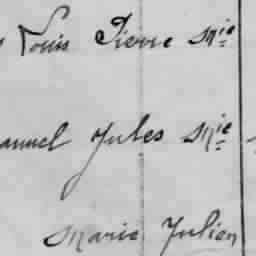 Louis Pierre Mie
anuel Jules Mie
Marie Julien